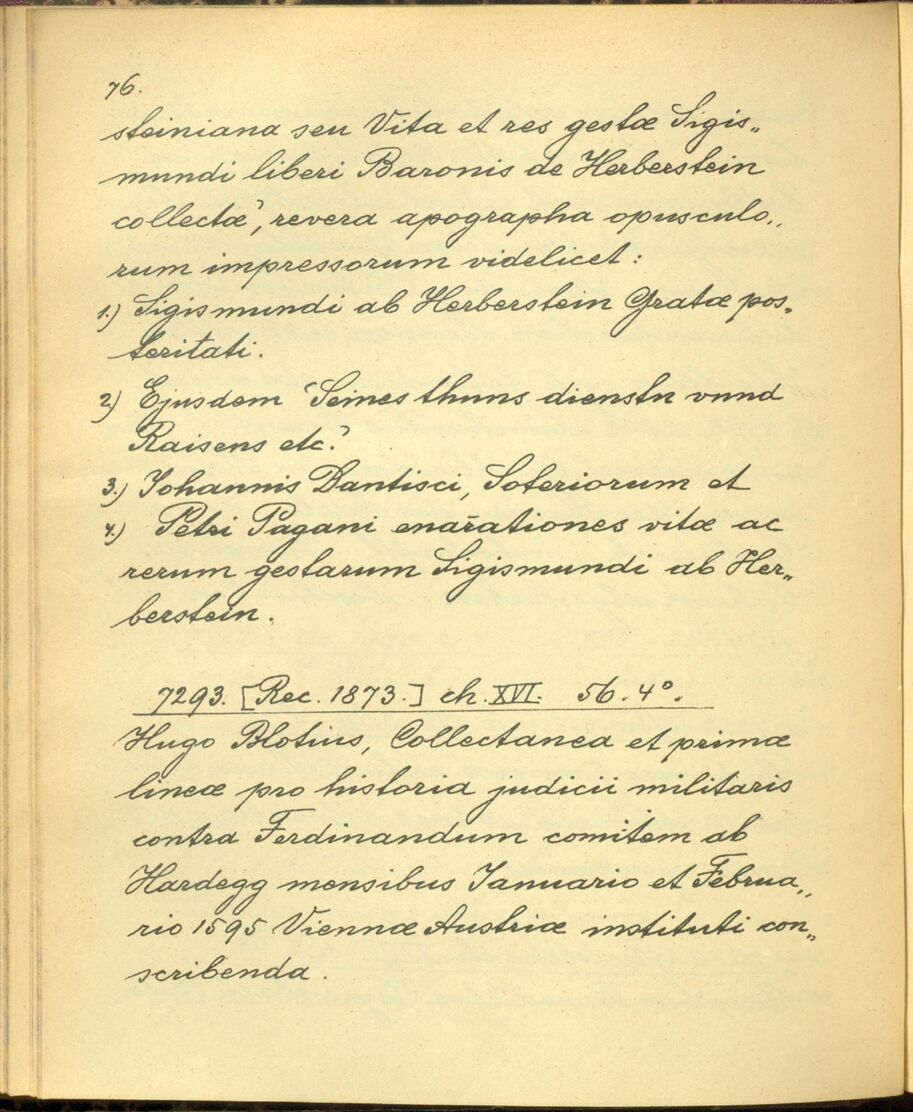 76.
steiniana seu Vita et res gestæ Sigis„
mundi liberi Baronis de Herberstein
collectæ’, revera apographa opusculo„
rum impressorum videlicet :
1.) Sigismundi ab Herberstein Gratæ pos„
teritati.
2) Ejusdem ‘Seines thuns dienstn vnnd
Raisens etc.’
3.) Iohannis Dantisci, Soteriorum et
4.) Petri Pagani enar̄ationes vitæ ac
rerum gestarum Sigismundi ab Her„
berstein.
7293. [Rec. 1873.] ch. XVI. 56. 4º.
Hugo Blotius, Collectanea et primæ
lineæ pro historia judicii militaris
contra Ferdinandum comitem ab
Hardegg mensibus Ianuario et Februa„
rio 1595 Viennæ Austriæ instituti con„
scribenda.